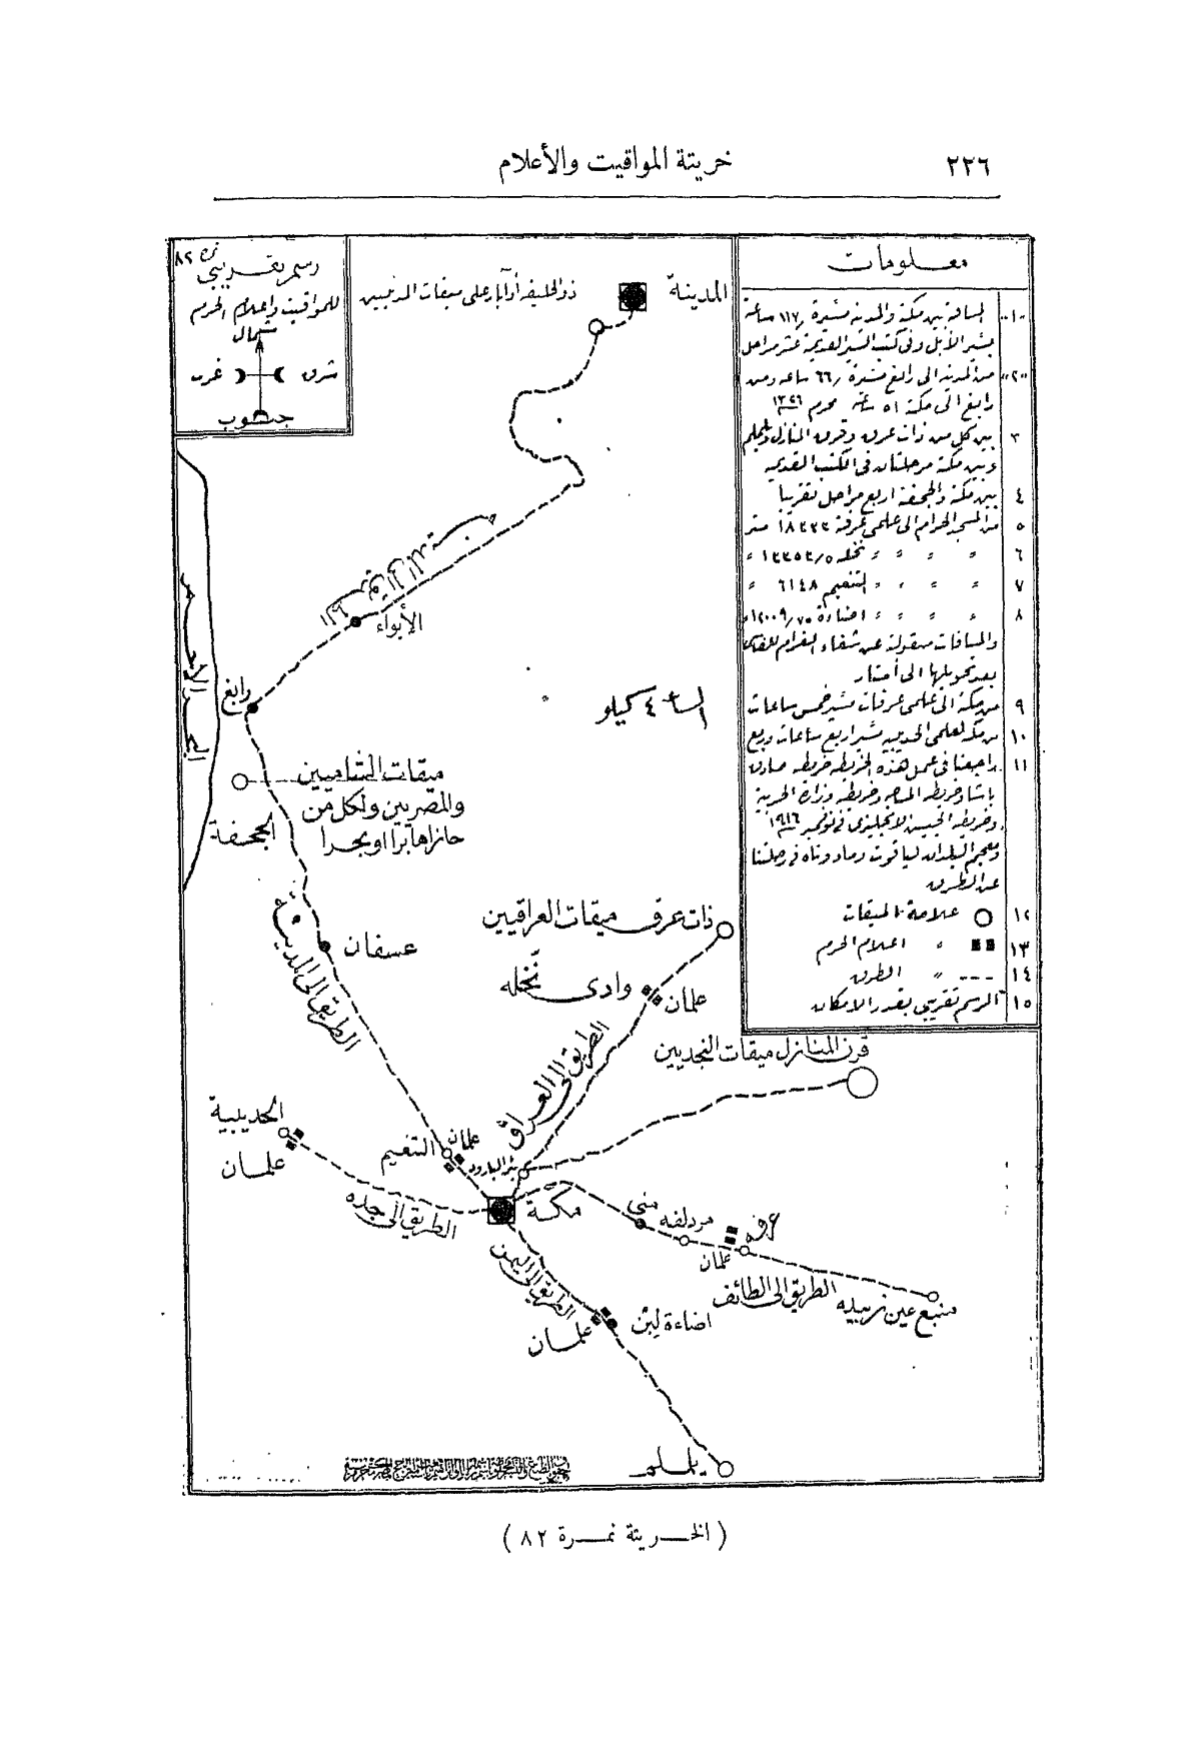 ٢٢٦
خريتة المواقيت والأعلام
نمرة ٨٢
رسم تقريبى
للمواقيت واعلام الحرم
شمال
شرق
غرب
جنوب
معلومات
١ المسافة بين مكة والمدينة مسيرة ١١٧ ساعة
بسير الأبل وفى كتب السير القديمة عشر مراحل
٢ من المدينة الى رابغ مسيرة ٦٦ ساعه ومن
رابغ الى مكة ٥١ ساعة محرم ١٣٢٦
٣ بين كل من ذات عرق وقرن المنازل ويلملم
وبين مكة مرحلتان فى الكتب القديمه
٤ بين مكة والجحفة اربع مراحل تقريبا
٥ من المسجد الحرام الى علمى عرفة ١٨٣٣٣ متر
٦ " " " " نخله ١٣٣٥٣/٥ "
٧ " " " " التنعيم ٦١٤٨ "
٨ " " " " اضاءة ١٢٠٠٩/٧٥
والمسافات منقولة عن شفاء الغرام للفاسى
بعد تحويلها الى أمتار
٩ من مكة الى علمى عرفات مسير خمس ساعات
١٠ من مكة لعلمى الحديبيه مسير اربع ساعات وربع
١١ راجعنا فى عمل هذه الخريطه خريطه صادق
باشا وخريطه وخريطه وزارة الحربية
وخريطه الجيش الانجليزى فى نوفمبر ١٩١٦
ومعجم البلدان لياقوت وما دوناه فى رحلتنا
عن الطرق
١٢ علامة الميقات
١٣ " اعلام الحرم
١٤ " الطرق
١٥ الرسم تقريبى بقدر الامكان
المدينة
ذو الحليفه أو آبار على ميقات المدنيين
الأبواء
رابغ
البحر الاحمر
الساعة ٤ كيلو
ميقات الشاميين
والمصريين ولكل من
حاذاها برا او بحرا
الجحفة
عسفان
الطريق الى المدينة
ذات عرق ميقات العراقيين
وادى نخله
علمان
الطريق الى العراق
قرن المنازل ميقات النجديين
الحديبية
علمان
التنعيم
علمان
بئر البارود
مكة
الطريق الى جده
منى
مزدلفه
عرفه
علمان
الطريق الى الطائف
منبع عين زبيده
الطريق الى اليمن
اضاءة لبن
علمان
يلملم
( الخريتة نمرة ٨٢ )